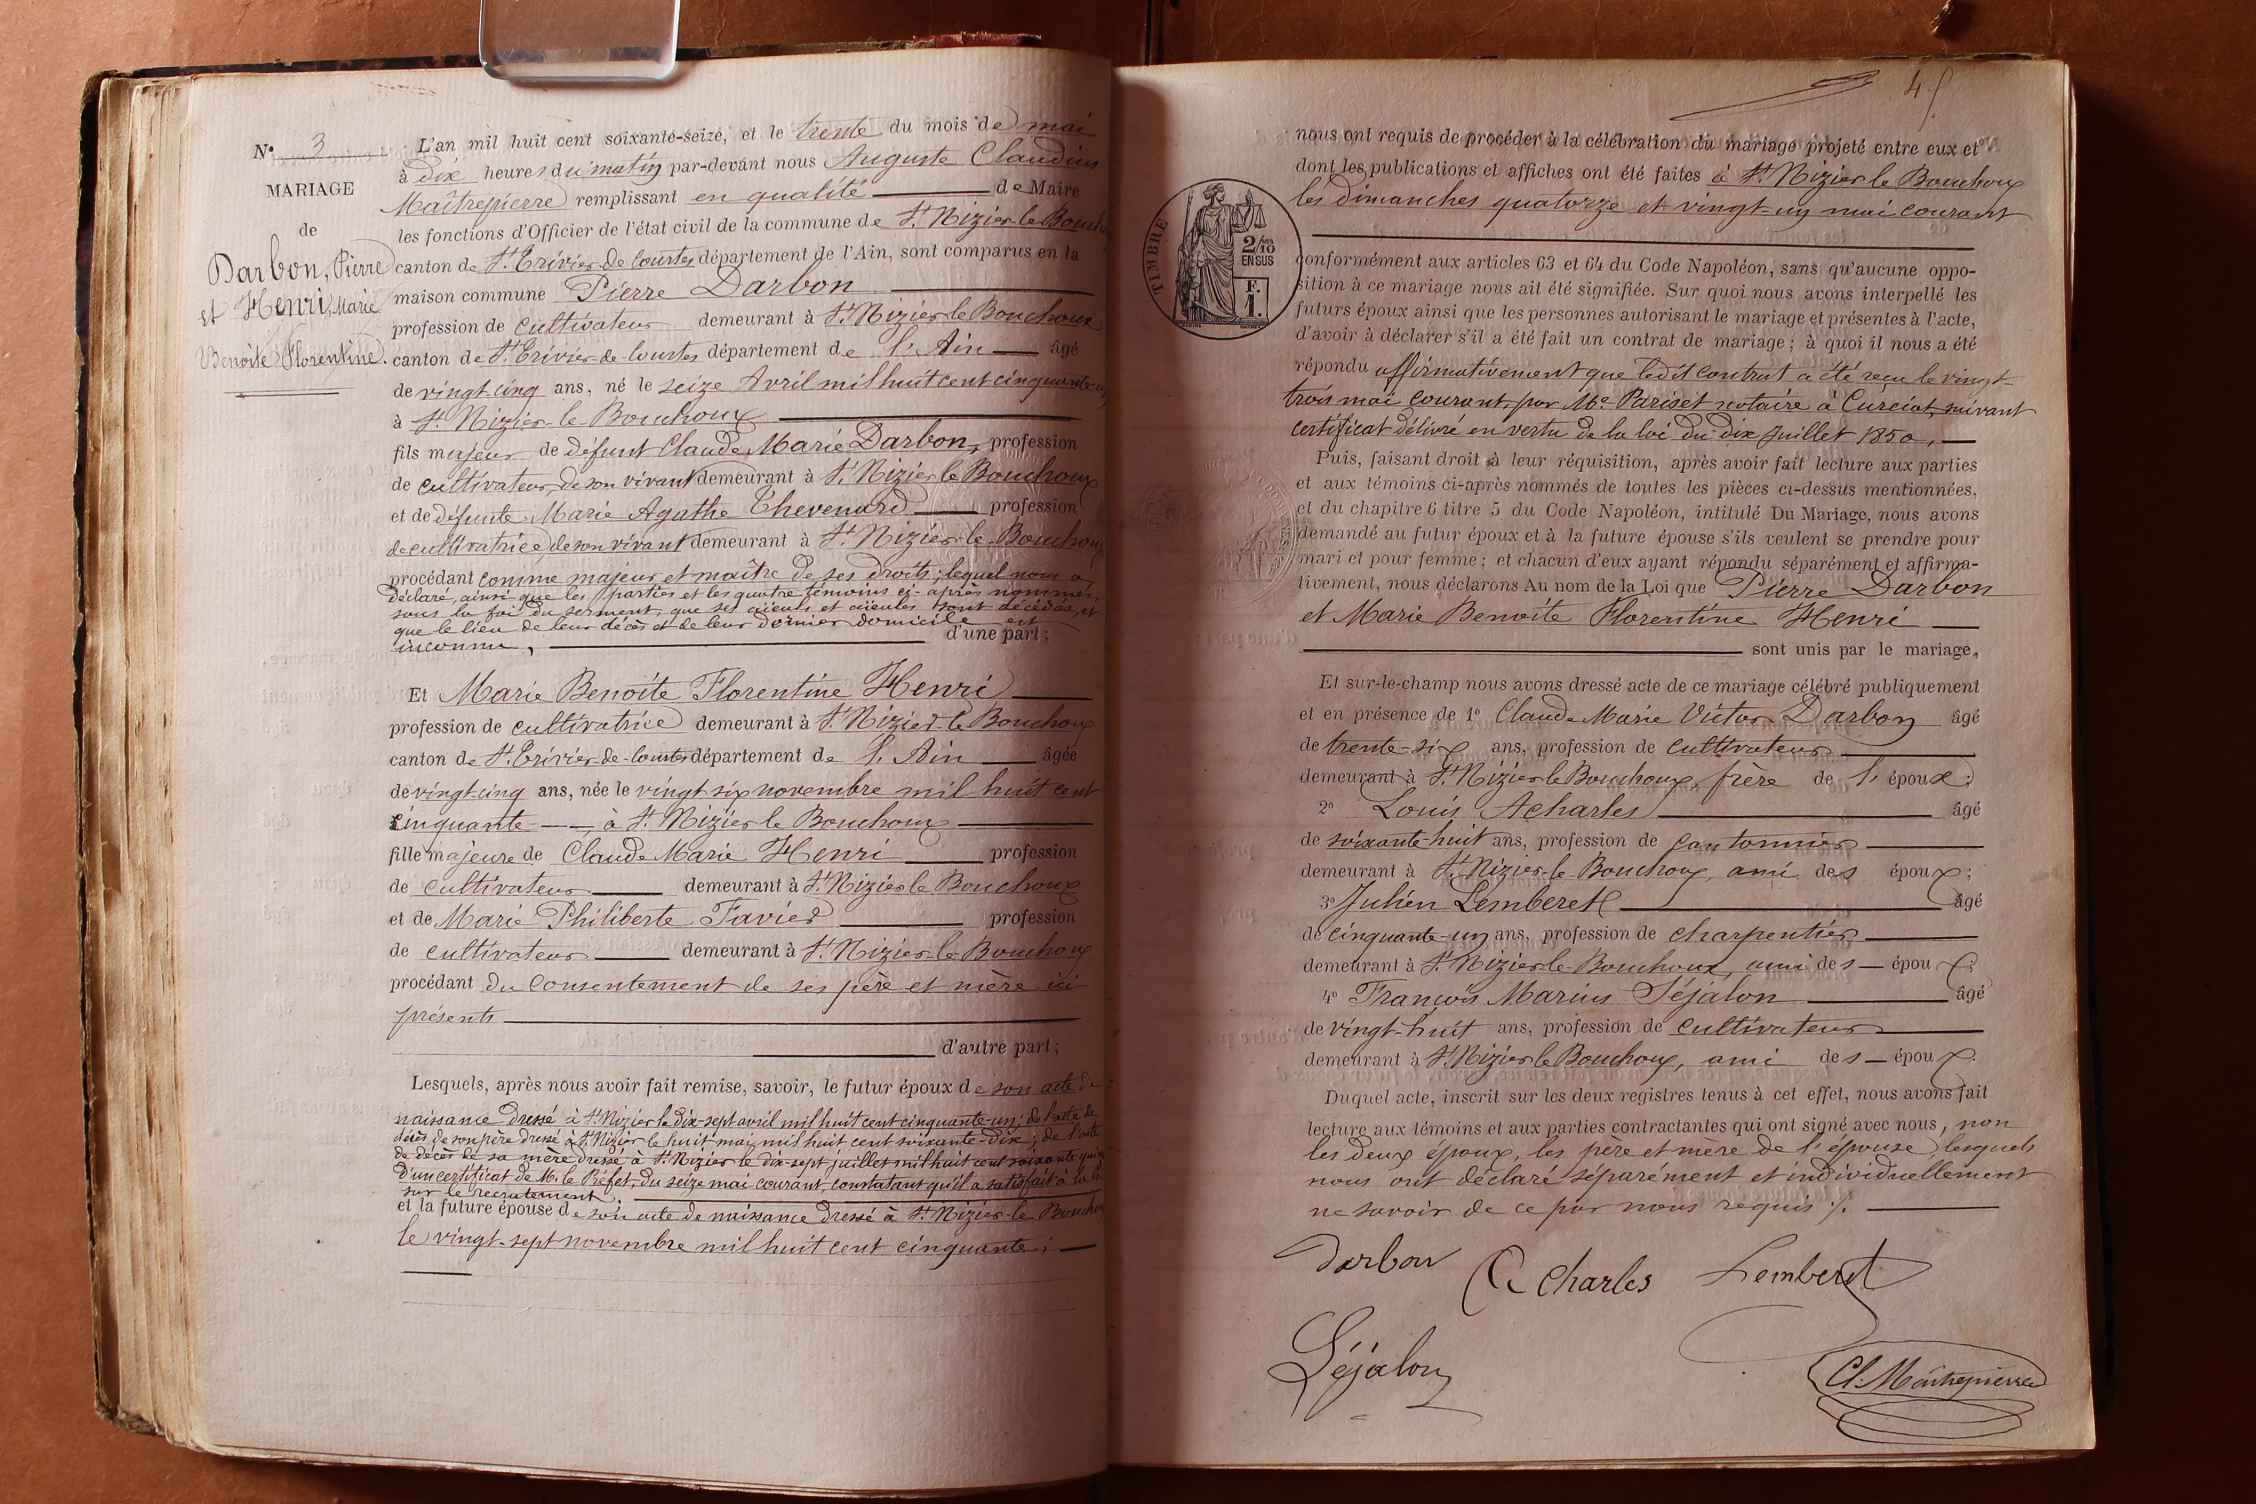 N° 3
MARIAGE
de
Darbon, Pierre
et Henri, Marie
Benoite Florentine.
L'an mil huit cent soixante-seize, et le trente du mois de mai
à dix heures du matin par-devant nous Auguste Claudius
Maîtrepierre remplissant en qualité de Maire
les fonctions d'Officier de l'état civil de la commune de St. Nizier-le-Bouchoux
canton de St. Trivier-de-Courtes département de l'Ain, sont comparus en la
maison commune Pierre Darbon
profession de cultivateur demeurant à St. Nizier le Bouchoux
canton de St. Trivier-de-Courtes département de l'Ain âgé
de vingt cinq ans, né le seize Avril mil huit cent cinquante-un
à St. Nizier-le-Bouchoux
fils majeur de défunt Claude Marie Darbon, profession
de cultivateur, de son vivant demeurant à St. Nizier le Bouchoux
et de défunte Marie Agathe Thevenard profession
de cultivatrice, de son vivant demeurant à St. Nizier-le-Bouchoux
procédant comme majeur et maître de ses droits; lequel nous a
déclaré, ainsi que les parties et les quatre témoins ci-après nommés,
sous la foi du serment, que ses aïeuls et aïeules sont décédés, et
que le lieu de leur décès et de leur dernier domicile est
inconnu, d'une part;
Et Marie Benoite Florentine Henri
profession de cultivatrice demeurant à St. Nizier-le Bouchoux
canton de St. Trivier-de-Courtes département de l'Ain âgée
de vingt-cinq ans, née le vingt six novembre mil huit cent
cinquante à St. Nizier le Bouchoux
fille majeure de Claude Marie Henri profession
de cultivateur demeurant à St. Nizier le Bouchoux
et de Marie Philiberte Favier profession
de cultivateur demeurant à St. Nizier-le Bouchoux
procédant du consentement de ses père et mère ici
présents
d'autre part;
Lesquels, après nous avoir fait remise, savoir, le futur époux de son acte de
naissance dressé à St. Nizier le dix-sept avril mil huit cent cinquante-un; de l'acte de
décès de son père dressé à St. Nizier le huit mai mil huit cent soixante-dix; de l'acte
de décès de sa mère dressé à St. Nizier le dix-sept juillet mil huit cent soixante
d'un certificat de M. le Préfet, du seize mai courant, constatant qu'il a satisfait à la loi
sur le recrutement.
et la future épouse de son acte de naissance dressé à St. Nizier-le Bouchoux
le vingt-sept novembre mil huit cent cinquante;
45
nous ont requis de procéder à la célébration du mariage projeté entre eux et
dont les publications et affiches ont été faites à St. Nizier le Bouchoux
les dimanches quatorze et vingt-un mai courant
TIMBRE
2/10
EN SUS
F.
1.
conformément aux articles 63 et 64 du Code Napoléon, sans qu'aucune oppo-
sition à ce mariage nous ait été signifiée. Sur quoi nous avons interpellé les
futurs époux ainsi que les personnes autorisant le mariage et présentes à l'acte,
d'avoir à déclarer s'il a été fait un contrat de mariage; à quoi il nous a été
répondu affirmativement que ledit contrat a été reçu le vingt-
trois mai courant, par Me. Pariset notaire à Curciat, suivant
certificat délivré en vertu de la loi du dix Juillet 1850.
Puis, faisant droit à leur réquisition, après avoir fait lecture aux parties
et aux témoins ci-après nommés de toutes les pièces ci-dessus mentionnées,
et du chapitre 6 titre 5 du Code Napoléon, intitulé Du Mariage, nous avons
demandé au futur époux et à la future épouse s'ils veulent se prendre pour
mari et pour femme; et chacun d'eux ayant répondu séparément et affirma-
tivement, nous déclarons Au nom de la Loi que Pierre Darbon
et Marie Benoite Florentine Henri
sont unis par le mariage,
Et sur-le-champ nous avons dressé acte de ce mariage célébré publiquement
et en présence de 1° Claude Marie Victor Darbon âgé
de trente-six ans, profession de cultivateur
demeurant à St. Nizier le Bouchoux, frère de l'époux;
2° Louis Acharles âgé
de soixante-huit ans, profession de cantonnier
demeurant à St. Nizier-le-Bouchoux, ami des époux;
3° Julien Lemberet âgé
de cinquante-un ans, profession de charpentier
demeurant à St. Nizier-le-Bouchoux, ami des époux;
4° François Marius Séjalon âgé
de vingt-huit ans, profession de cultivateur
demeurant à St. Nizier le Bouchoux, ami des époux.
Duquel acte, inscrit sur les deux registres tenus à cet effet, nous avons fait
lecture aux témoins et aux parties contractantes qui ont signé avec nous, non
les deux époux, les père et mère de l'épouse, lesquels
nous ont déclaré séparément et individuellement
ne savoir de ce par nous requis ./.
Darbon Acharles Lemberet
Séjalon
Cl. Maitrepierre